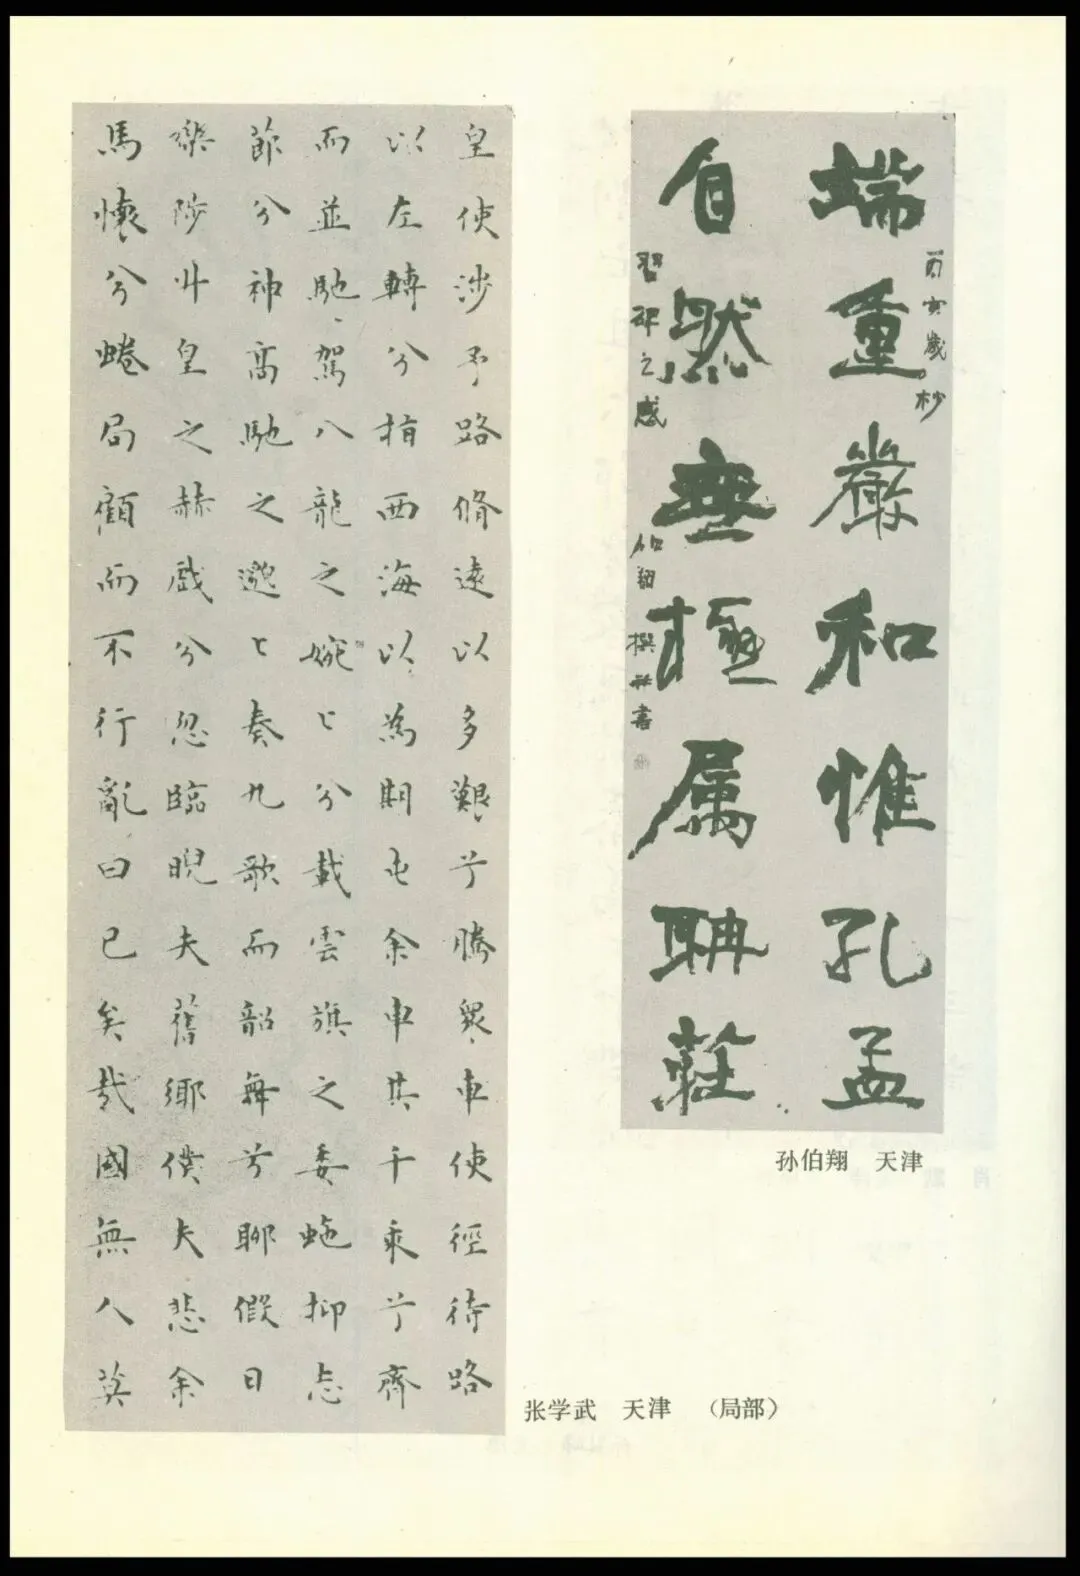 丙寅歲杪
端重嚴和惟孔孟
自然無極属聃莊
習碑之感 伯翔撰并書
孙伯翔 天津
皇使涉予路脩遠以多艱兮騰眾車使徑待路
以左轉兮指西海以為期屯余車其千乘兮齊
而並馳駕八龍之婉〻兮載雲旗之委蛇抑志
節兮神高馳之邈〻奏九歌而韶舞兮聊假日
樂陟升皇之赫戲兮忽臨睨夫舊鄉僕夫悲余
馬懷兮蜷局顧而不行亂曰已矣哉國無人莫
张学武 天津 （局部）